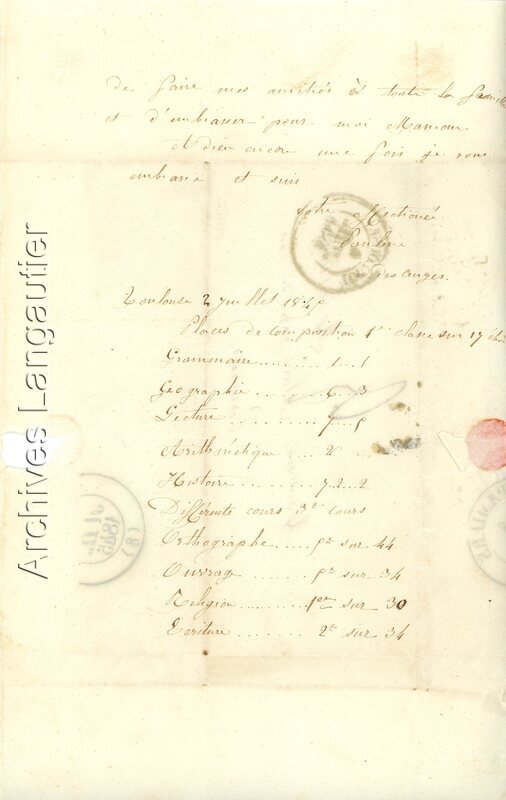 de faire mes amitiés à toute la famille
et d'embrasser pour moi Maman
et dieu encore une fois je vous
embrasse et suis
votre affectionée
Pauline
des anges.
Toulouse 2 Juillet 1840
Places de composition 4me classe sur 17
Grammaire........1..1
Geographie........6..3
Lecture
Arithmétique.....2
Histoire........7.2..2
Différents cours 3e cours
Orthographe..... sur 44
Ouvrage........ sur 34
Religion........1ere sur 30
Ecriture........2e sur 34
Archives Langautier